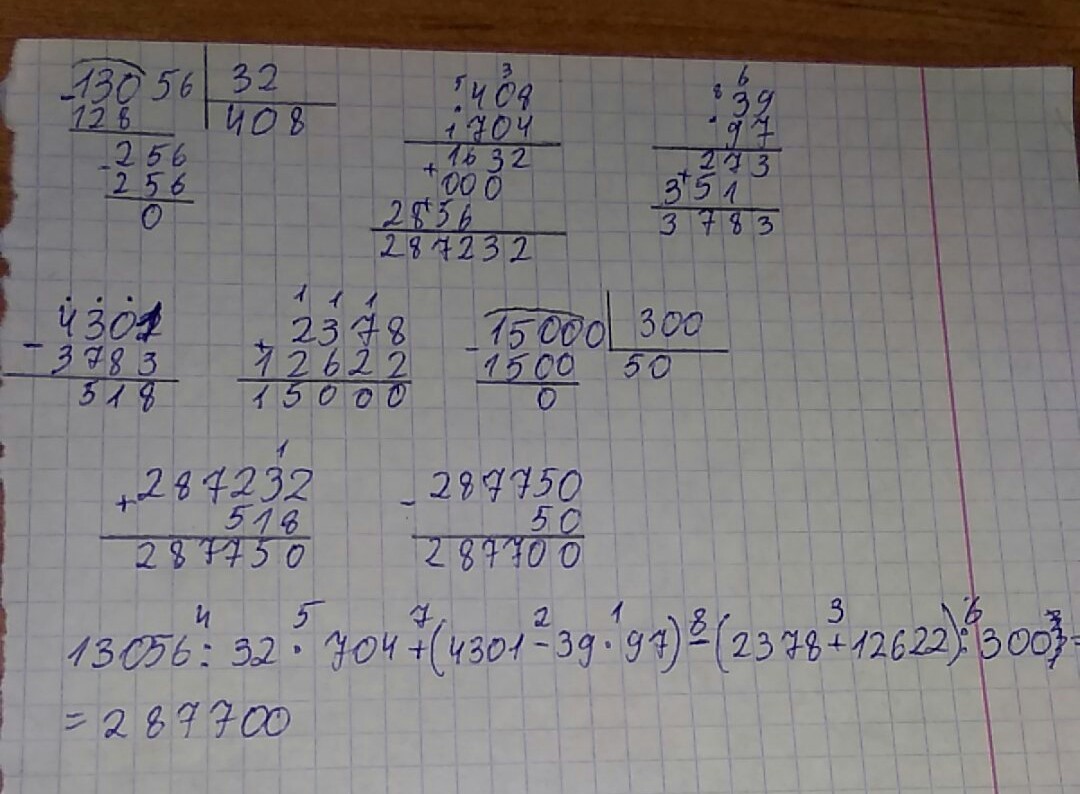 13056 32
128 408
- 256
256
0
5 3
408
· 1704
1632
+ 000
+ 2856
287232
8 6
39
· 97
273
+ 351
3783
4301
- 3783
518
1 1 1
+ 2378
12622
15000
- 15000 300
1500 50
0
1
+ 287232
518
287750
- 287750
50
287700
4 5 7 2 1 8 3 6
13056 : 32 · 704 + (4301 - 39 · 97) - (2378 + 12622) : 300 =
= 287700